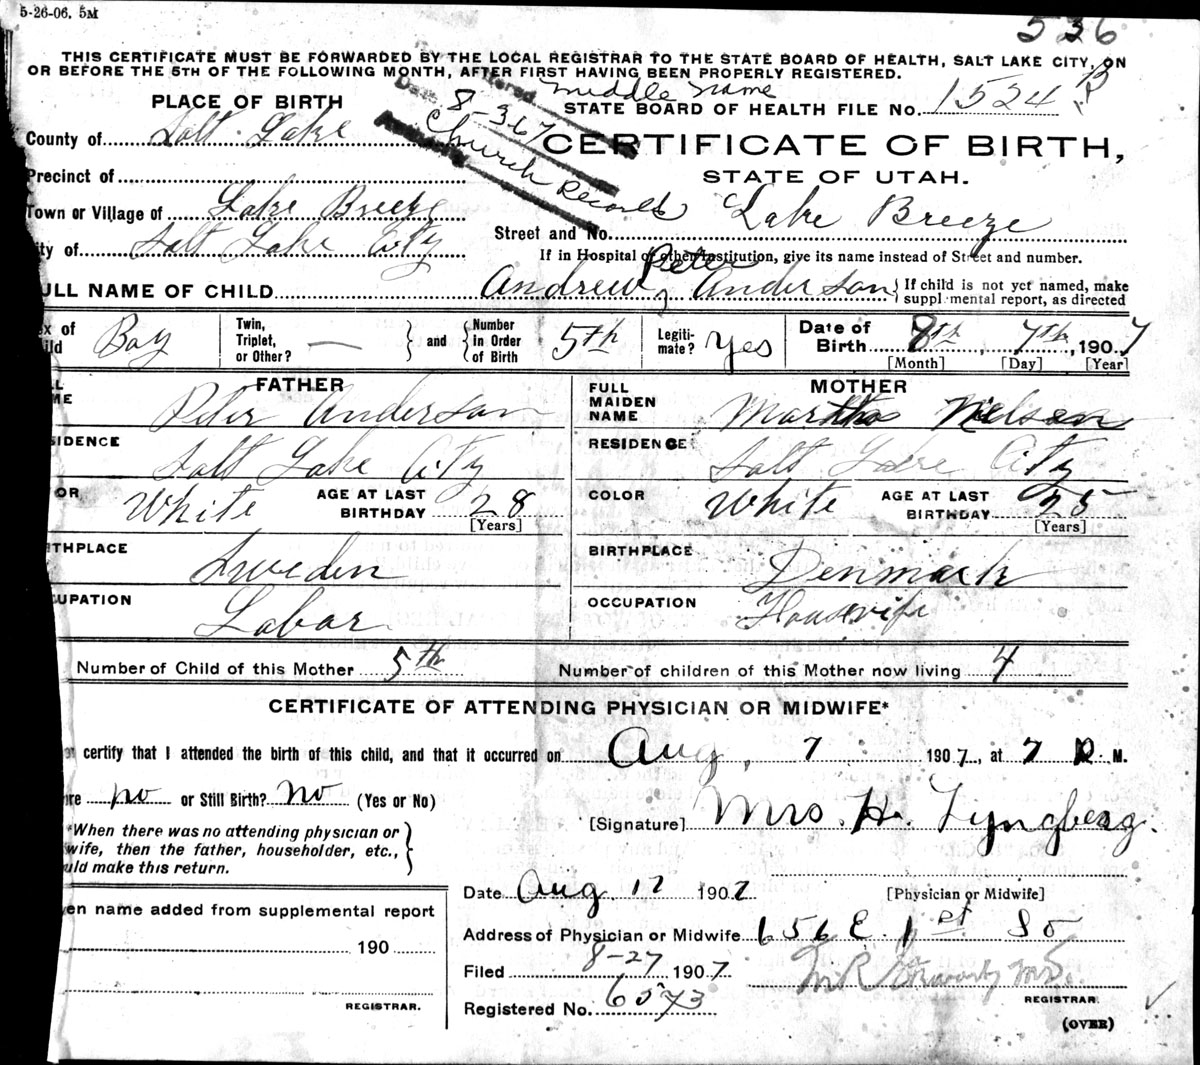 5-26-06. 5M
536
THIS CERTIFICATE MUST BE FORWARDED BY THE LOCAL REGISTRAR TO THE STATE BOARD OF HEALTH, SALT LAKE CITY, ON
OR BEFORE THE 5TH OF THE FOLLOWING MONTH, AFTER FIRST HAVING BEEN PROPERLY REGISTERED.
middle name
PLACE OF BIRTH
STATE BOARD OF HEALTH FILE No. 1524
Date 8-367
Church Records
County of Salt Lake
CERTIFICATE OF BIRTH,
Precinct of
STATE OF UTAH.
Town or Village of Lake Breeze
Street and No. Lake Breeze
ity of Salt Lake City
If in Hospital or other Institution, give its name instead of Street and number.
ULL NAME OF CHILD Andrew Peter Anderson
If child is not yet named, make supplemental report, as directed
ex of ild Boy
Twin, Triplet, or Other? — and Number in Order of Birth 5th
Legiti-mate? Yes
Date of Birth 8th, 7th, 1907
[Month] [Day] [Year]
FATHER
MOTHER
LL ME Peter Anderson
FULL MAIDEN NAME Martha Nielsen
SIDENCE Salt Lake City
RESIDENCE Salt Lake City
OR White AGE AT LAST BIRTHDAY 28 [Years]
COLOR White AGE AT LAST BIRTHDAY 25 [Years]
THPLACE Sweden
BIRTHPLACE Denmark
UPATION Labor
OCCUPATION Housewife
Number of Child of this Mother 5th
Number of children of this Mother now living 4
CERTIFICATE OF ATTENDING PHYSICIAN OR MIDWIFE*
certify that I attended the birth of this child, and that it occurred on Aug, 7 1907, at 7 P. M.
re no or Still Birth? No (Yes or No)
[Signature] Mrs. H. Lyngberg.
*When there was no attending physician or
wife, then the father, householder, etc.,
uld make this return.
Date Aug 12 1907
[Physician or Midwife]
en name added from supplemental report
Address of Physician or Midwife 656 E. 1st So
190
Filed 8-27 1907
M.D.
REGISTRAR.
REGISTRAR.
Registered No. 6573
(OVER)